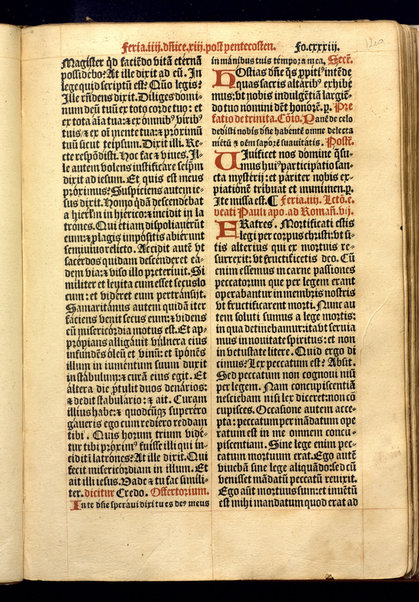 Feria.iiij.dñice.xiij.post pentecosten. Fo.cxxxiij.
Magister qd faciẽdo vitã eternã
possidebo? At ille dixit ad eũ. In
lege quid scriptũ est? Quõ legis?
Ille rñdens dixit. Diliges domi-
num deũ tuũ ex toto corde tuo: et
ex tota aĩa tua: ⁊ ex õnnib' virib'
tuis: ⁊ ex oĩ mente tua: ⁊ proximũ
tuũ sicut teipsum. Dixit illi. Re-
cte respõdisti. Hoc fac ⁊ viues. Il-
le autem volens iustificare seipsũ
dixit ad iesum. Et quis est meus
proximus? Suspiciens autem ie-
sus dixit. Homo qdã descendebat
a hierlm in hierico: ⁊ incidit in la
trones. Qui etiam dispoliauerũt
eum: ⁊ plagis impositis abierunt
semiuiuo relicto. Accidit autẽ vt
sacerdos quidam descenderet ea-
dem via: ⁊ viso illo preteriuit. Si
militer et leuita cum esset secus lo
cum: et videret eum pertransijt.
Samaritanus autem quidã iter
faciens venit secus eum: ⁊ videns
eũ misericordia motus est. Et ap-
propians alligauit vulnera eius
infundẽs oleũ et vinũ: et ĩponẽs
illum in iumentum suum duxit
in stabulum: ⁊ curã eius egit. Et
altera die ptulit duos denarios:
⁊ dedit stabulario: ⁊ ait. Curam
illius habe: ⁊ quodcũqz superero
gaueris ego cum rediero reddam
tibi. Quis horum trium vide-
tur tibi proxim' fuisse illi qui in-
cidit ĩ latrones? At ille dixit. Qui
fecit misericordiam in illum. Et
ait illi iesus. Vade ⁊ tu fac simili-
ter. dicitur Credo. Offertorium.
In te dñe speraui dixi tu es deꝰ meus
in manibus tuis tempora mea. Secr.
Hostias dñe qs ppiti' intẽde
quas sacris altarib' exhibe
mus: vt nobis indulgẽtiã largiẽ-
do tuo nomini det honorẽ. p. Pre
fatio de trinita. Cõio. Panẽ de celo
dedisti nobis dñe habentẽ omne delecta
mẽtũ ⁊ oẽm saporẽ suauitatis. Postcõ.
Viuificet nos domine qsu-
mus hui' participatio san-
cta mysterij: et pariter nobis ex-
piationẽ tribuat et munimen. p.
Ite missa est. ¶ Feria.iiij. Lectõ. e.
beati Pauli apo. ad Romañ. vij.
Fratres. Mortificati estis
legi per corpus christi: vt si-
tis alterius qui ex mortuis re-
surrexit: vt fructificetis deo. Cũ
enim essemus in carne passiones
peccatorum que per legem erant
operabantur in membris nostris
vt fructificarent morti. Nunc au
tem soluti sumus a lege mortis:
in qua detinebamur: ita vt seruia
mus in nouitate spiritus: et non
in vetustate litere. Quid ergo di
cimus: Lex peccatum est? Absit.
Sed peccatum non cognoui nisi
per legem. Nam concupiscentiã
nesciebam nisi lex diceret: non cõ
cupisces. Occasione autem acce-
pta: peccatum per mãdatum ope
ratum est in me omnem concu-
piscentiam. Sine lege enim pec-
catum mortuum erat. Ego autẽ
viuebã sine lege aliquãdo: sed cũ
venisset mãdatũ peccatũ reuixit.
Ego aũt mortuus sum: et inuẽtũ
est mihi mandatum quod erat ad